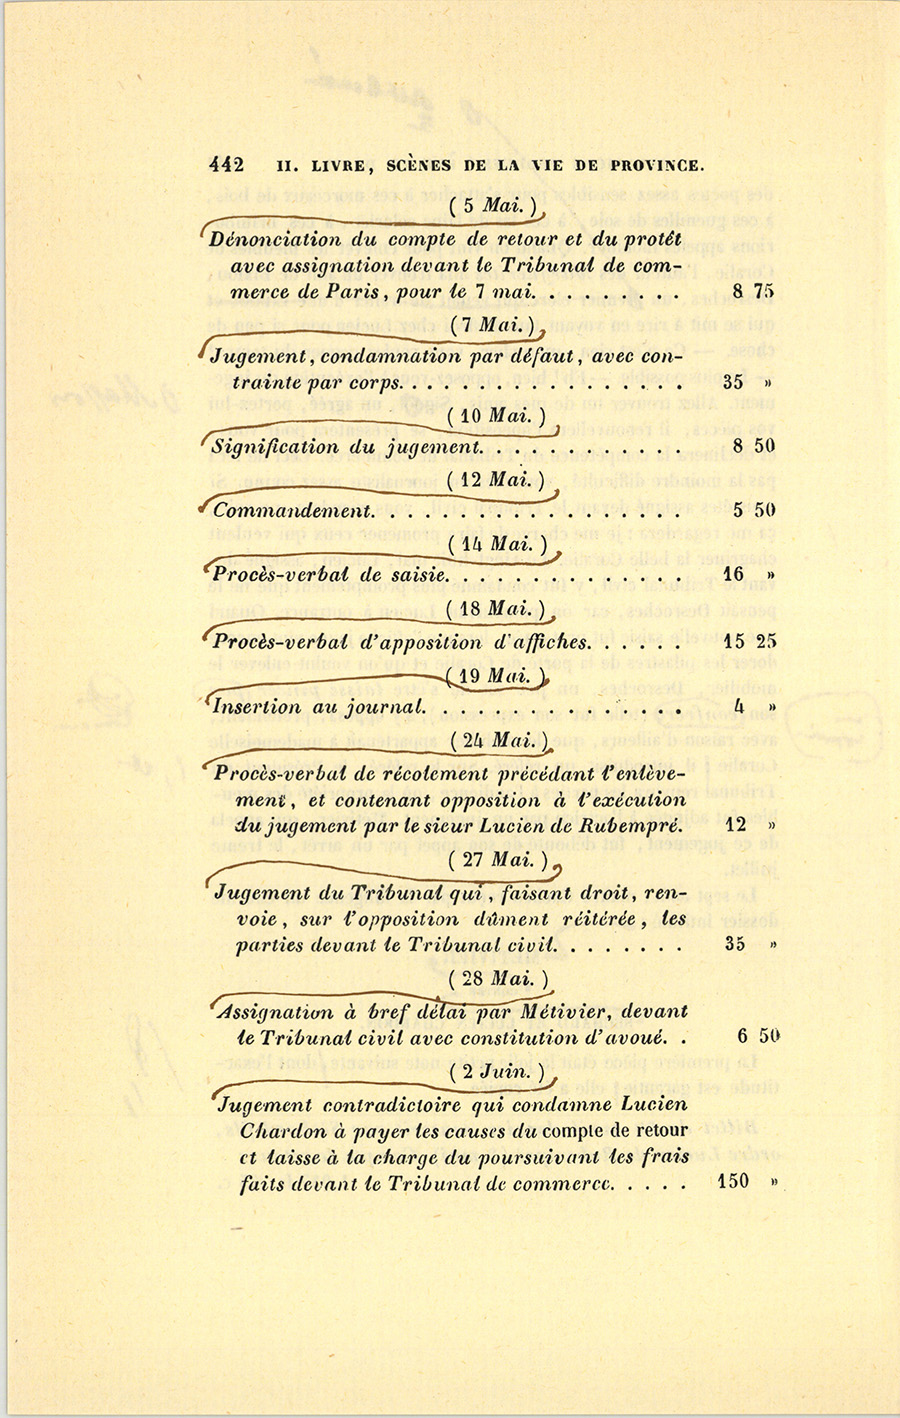 442 II. LIVRE, SCÈNES DE LA VIE DE PROVINCE.
( 5 Mai. )
Dénonciation du compte de retour et du protêt
avec assignation devant le Tribunal de com-
merce de Paris, pour le 7 mai. . . . . . . . . 8 75
(7 Mai. )
Jugement, condamnation par défaut, avec con-
trainte par corps. . . . . . . . . . . . . . . . 35 »
( 10 Mai. )
Signification du jugement. . . . . . . . . . . . 8 50
( 12 Mai. )
Commandement. . . . . . . . . . . . . . . . . . 5 50
( 14 Mai. )
Procès-verbal de saisie. . . . . . . . . . . . . . 16 »
( 18 Mai. )
Procès-verbal d'apposition d'affiches. . . . . . 15 25
( 19 Mai. )
Insertion au journal. . . . . . . . . . . . . . . 4 »
( 24 Mai. )
Procès-verbal de récolement précédant l'enlève-
ment, et contenant opposition à l'exécution
du jugement par le sieur Lucien de Rubempré. 12 »
( 27 Mai. )
Jugement du Tribunal qui, faisant droit, ren-
voie, sur l'opposition dûment réitérée, les
parties devant le Tribunal civil. . . . . . . . 35 »
( 28 Mai. )
Assignation à bref délai par Métivier, devant
le Tribunal civil avec constitution d'avoué. . 6 50
( 2 Juin. )
Jugement contradictoire qui condamne Lucien
Chardon à payer les causes du compte de retour
et laisse à la charge du poursuivant les frais
faits devant le Tribunal de commerce. . . . . 150 »